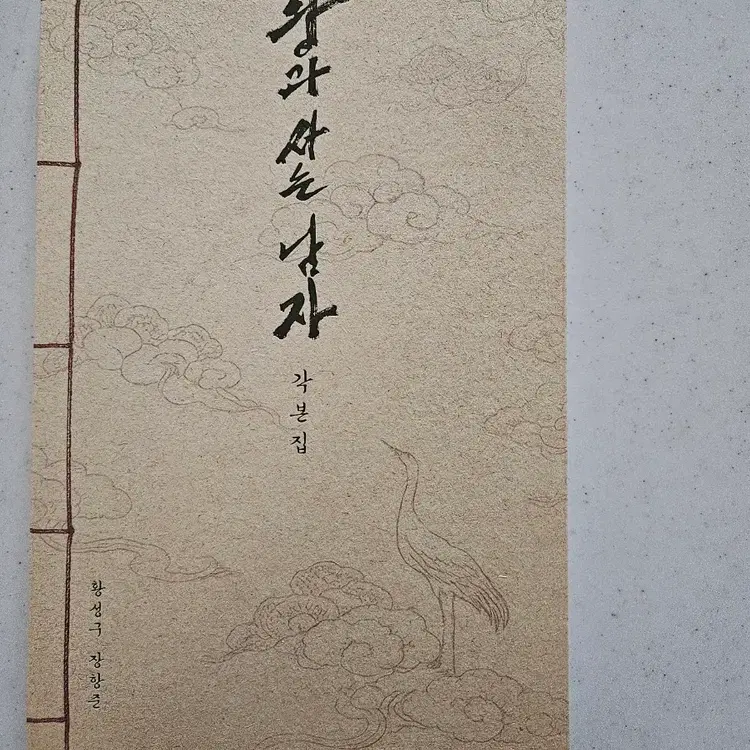 왕과 사는 남자
각본집
황성구 장항준